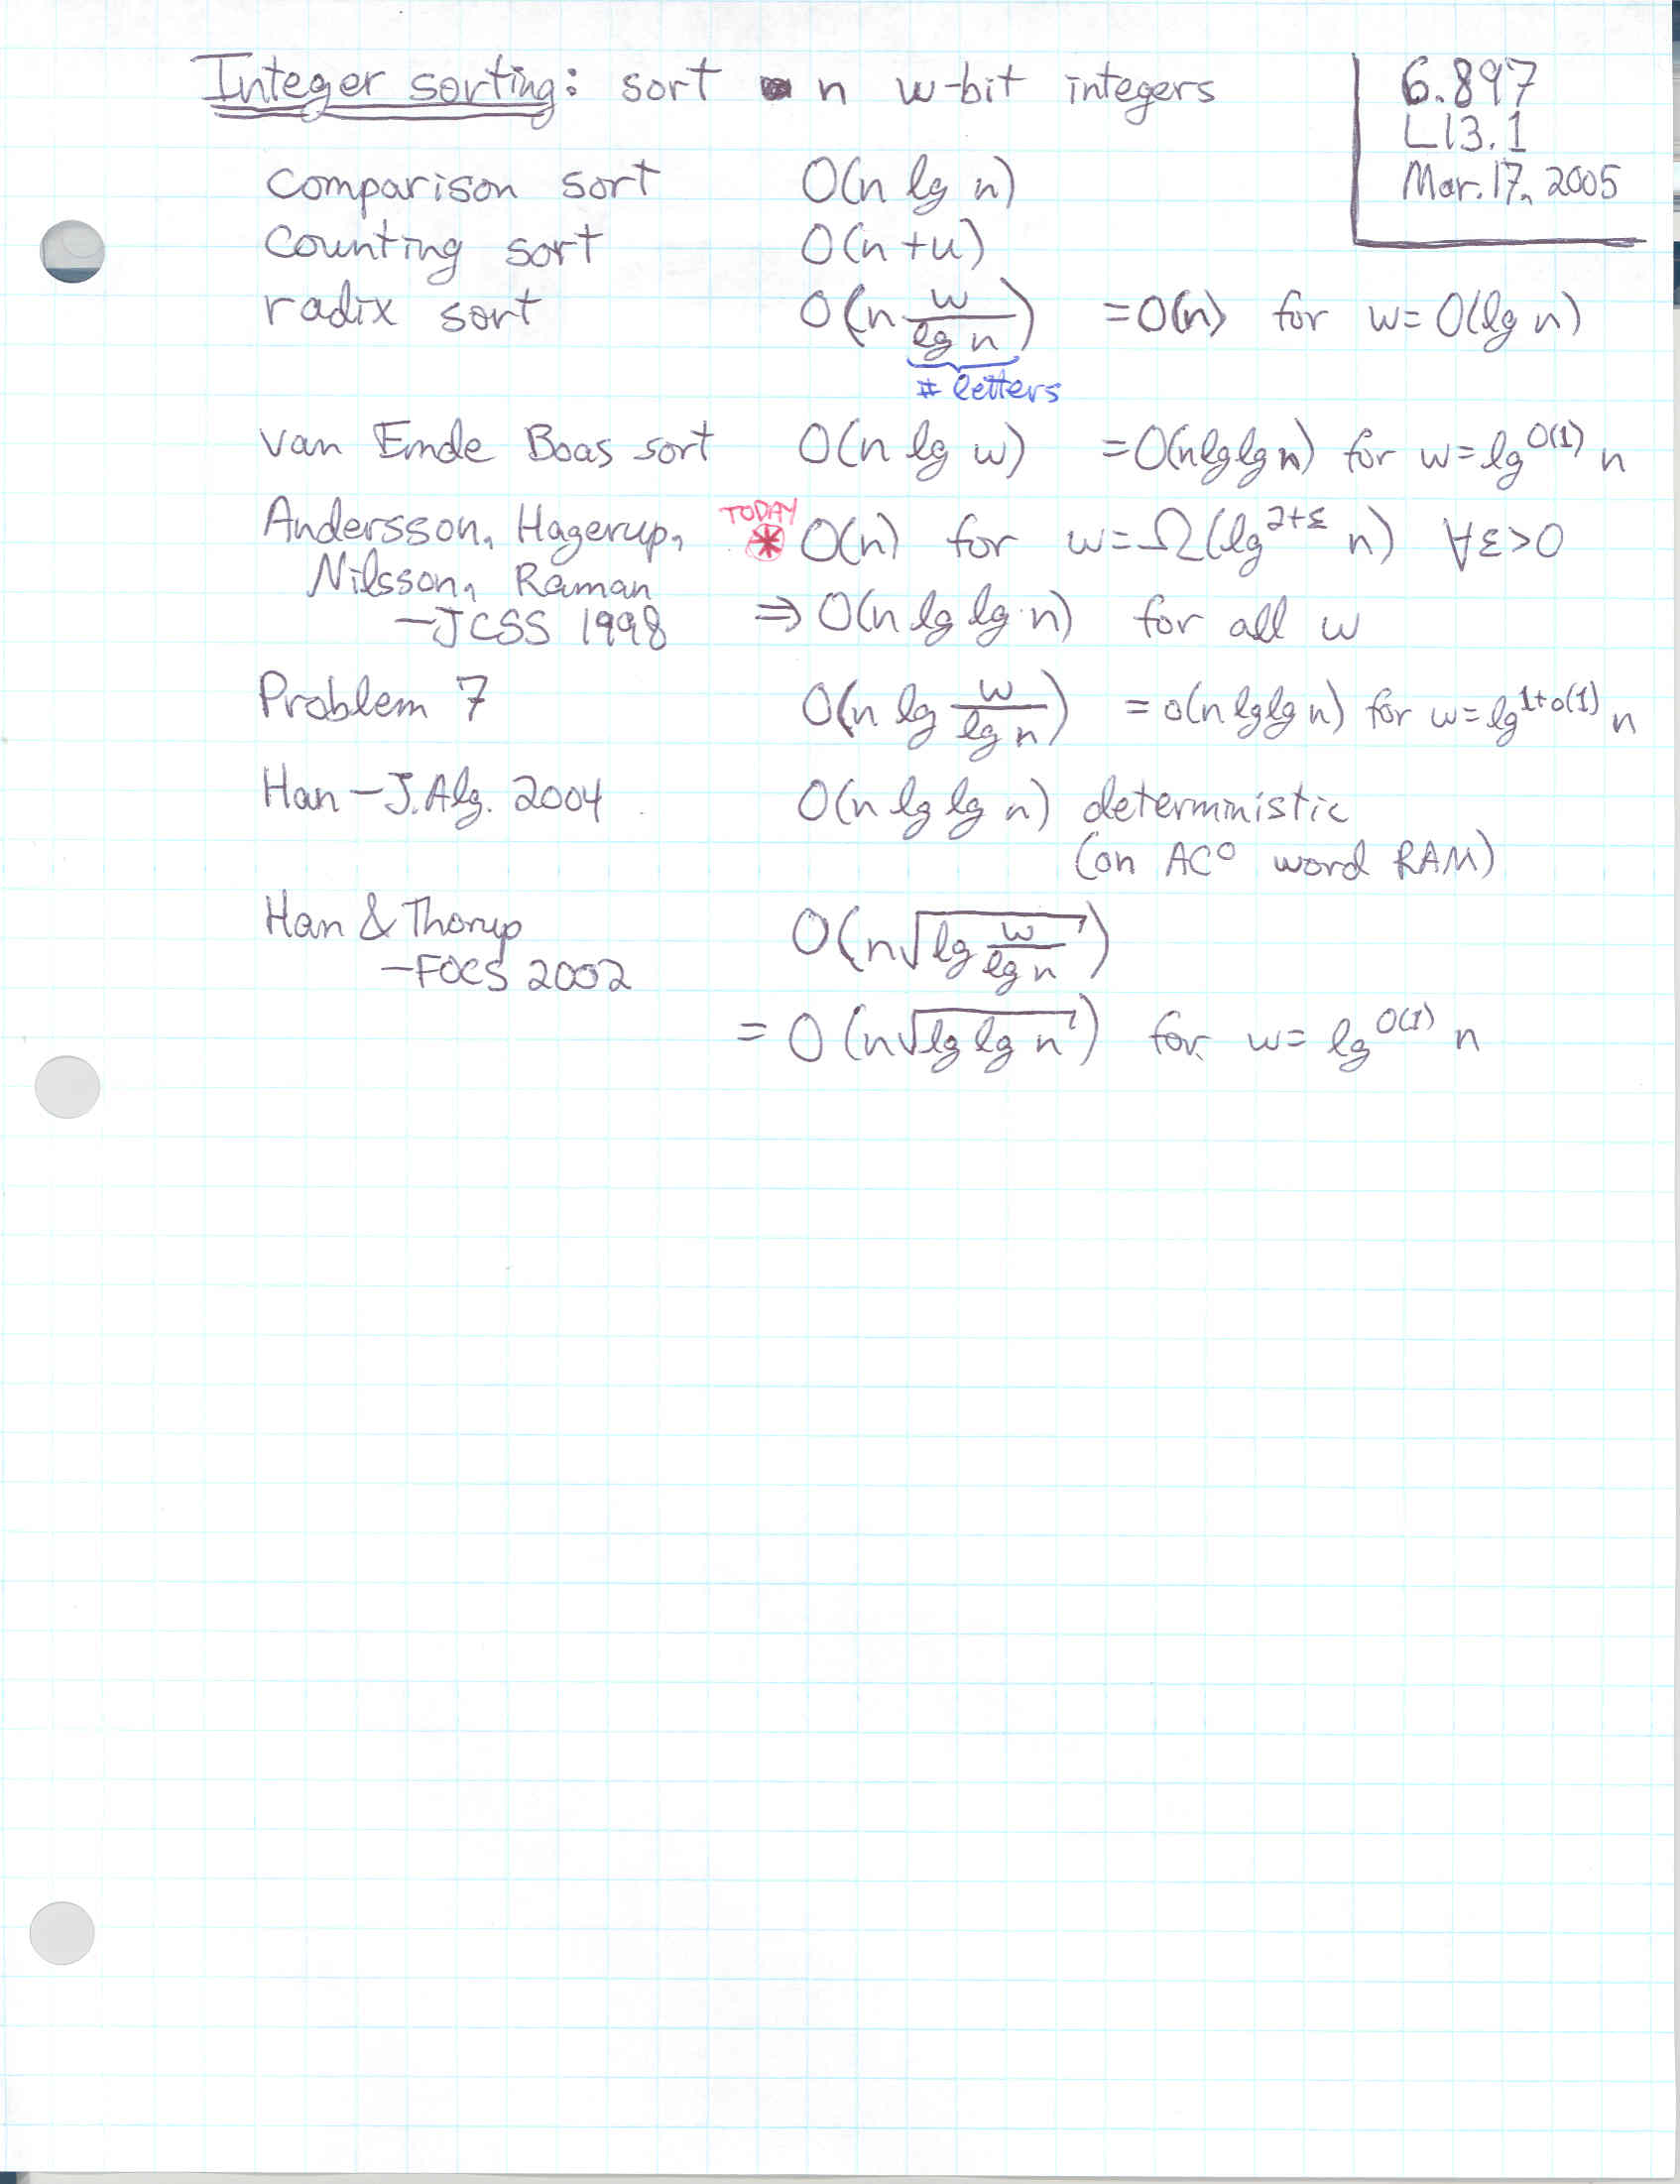 Integer sorting: sort n w-bit integers
6.897
L13.1
Mar. 17, 2005
comparison sort O(n lg n)
counting sort O(n+u)
radix sort O(n w/lg n) = O(n) for w = O(lg n)
# letters
van Emde Boas sort O(n lg w) = O(n lg lg n) for w = lg^O(1) n
TODAY
Andersson, Hagerup, * O(n) for w = Ω(lg^2+ε n) ∀ε>0
Nilsson, Raman
—JCSS 1998 ⇒ O(n lg lg n) for all w
Problem 7 O(n lg w/lg n) = o(n lg lg n) for w = lg^1+o(1) n
Han — J. Alg. 2004 O(n lg lg n) deterministic
(on AC⁰ word RAM)
Han & Thorup O(n √lg w/lg n)
—FOCS 2002
= O(n √lg lg n) for w = lg^O(1) n